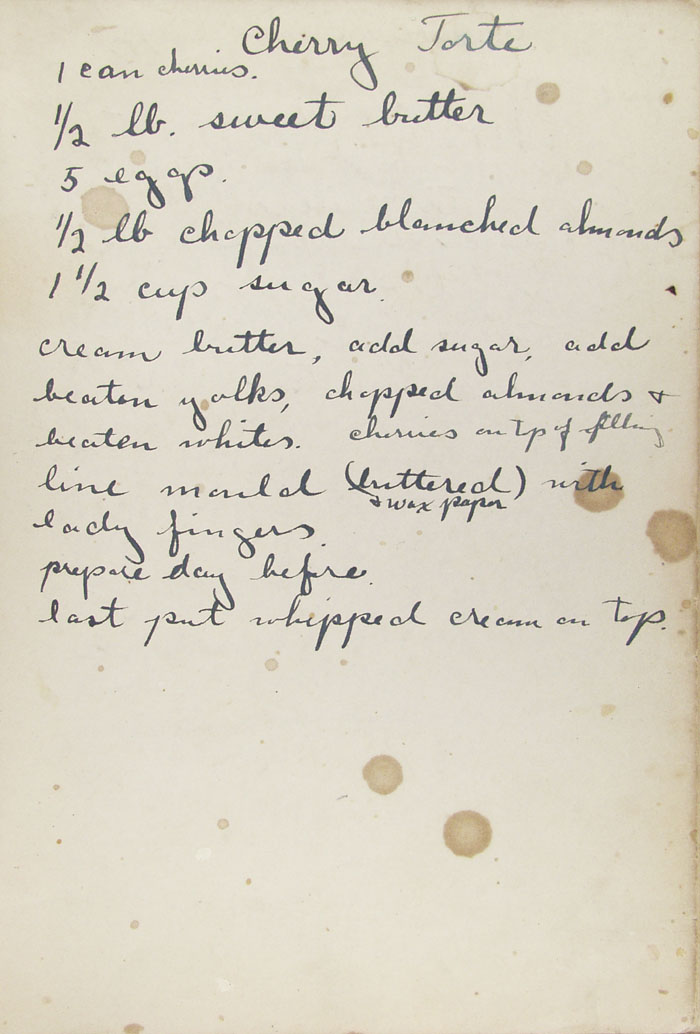 Cherry Torte
1 can cherries.
1/2 lb. sweet butter
5 eggs.
1/2 lb chopped blanched almonds
1 1/2 cup sugar.
cream butter, add sugar, add
beaten yolks, chopped almonds +
beaten whites. cherries on top of filling
line mould (buttered) with
+ wax paper
lady fingers.
prepare day before.
last put whipped cream on top.